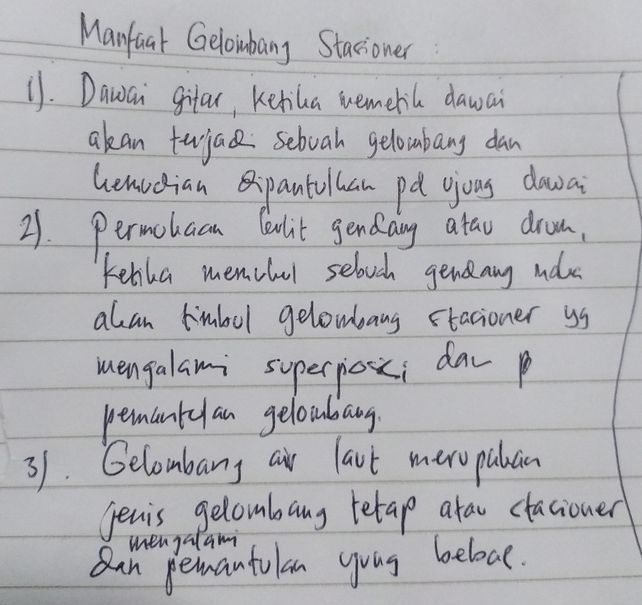 Manfaat Gelombang Stasioner :
1). Dawai gitar, ketika memetik dawai
akan terjadi sebuah gelombang dan
kemudian dipantulkan pd ujung dawai
2). Permukaan kulit gendang atau drum,
ketika memukul sebuah gendang maka
akan timbul gelombang stasioner yg
mengalami superposisi dan p
pemantulan gelombang.
3). Gelombang air laut merupakan
jenis gelombang tetap atau stasioner
mengalami
dan pemantulan ujung bebas.